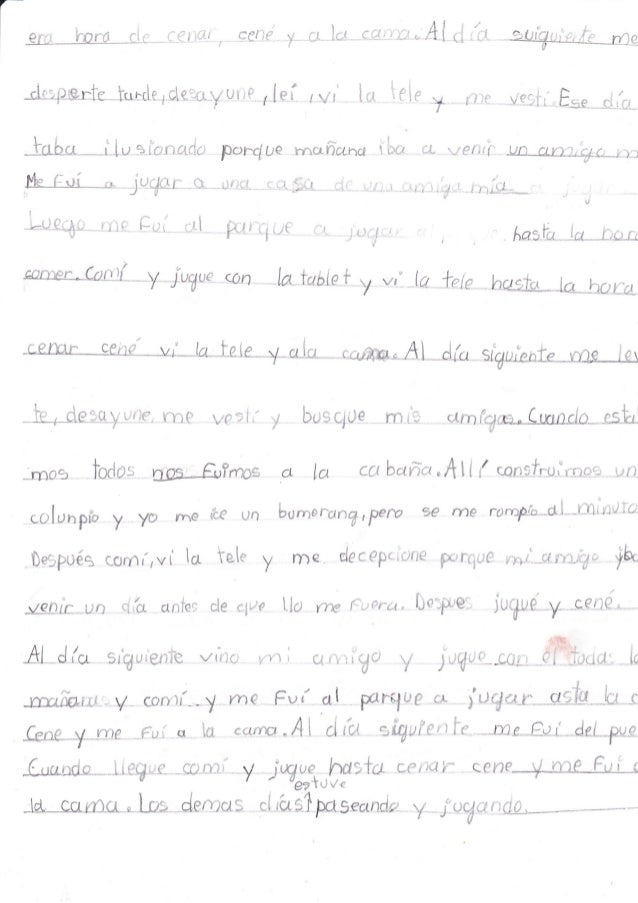 era hora de cenar, cené y a la cama. Al día suiguiente me
desperte tarde, desayune, leí, vi la tele y me vesti. Ese día
taba ilusionado porque mañana iba a venir un amigo m
Me fuí a jugar a una casa de una amiga mía
Luego me fuí al parque a jugar hasta la hora
comer. Comí y jugue con la tablet y vi la tele hasta la hora
cenar cené vi la tele y ala cama. Al día siguiente me lev
te, desayune, me vestí y busque mis amigos. Cuando esta
mos todos nos fuimos a la cabaña. Allí construimos un
colunpio y yo me ice un bumerang, pero se me rompio al minuto
Después comí, vi la tele y me decepcione porque mi amigo iba
venir un día antes de que llo me fuera. Despues jugué y cené.
Al día siguiente vino mi amigo y jugue con el todas la
mañanas y comí y me fuí al parque a jugar asta la c
Cene y me fuí a la cama. Al día siguiente me fui del pue
Cuando llegue comi y jugue hasta cenar cene y me fuí a
estuve
la cama. Los demas días paseando y jugando.